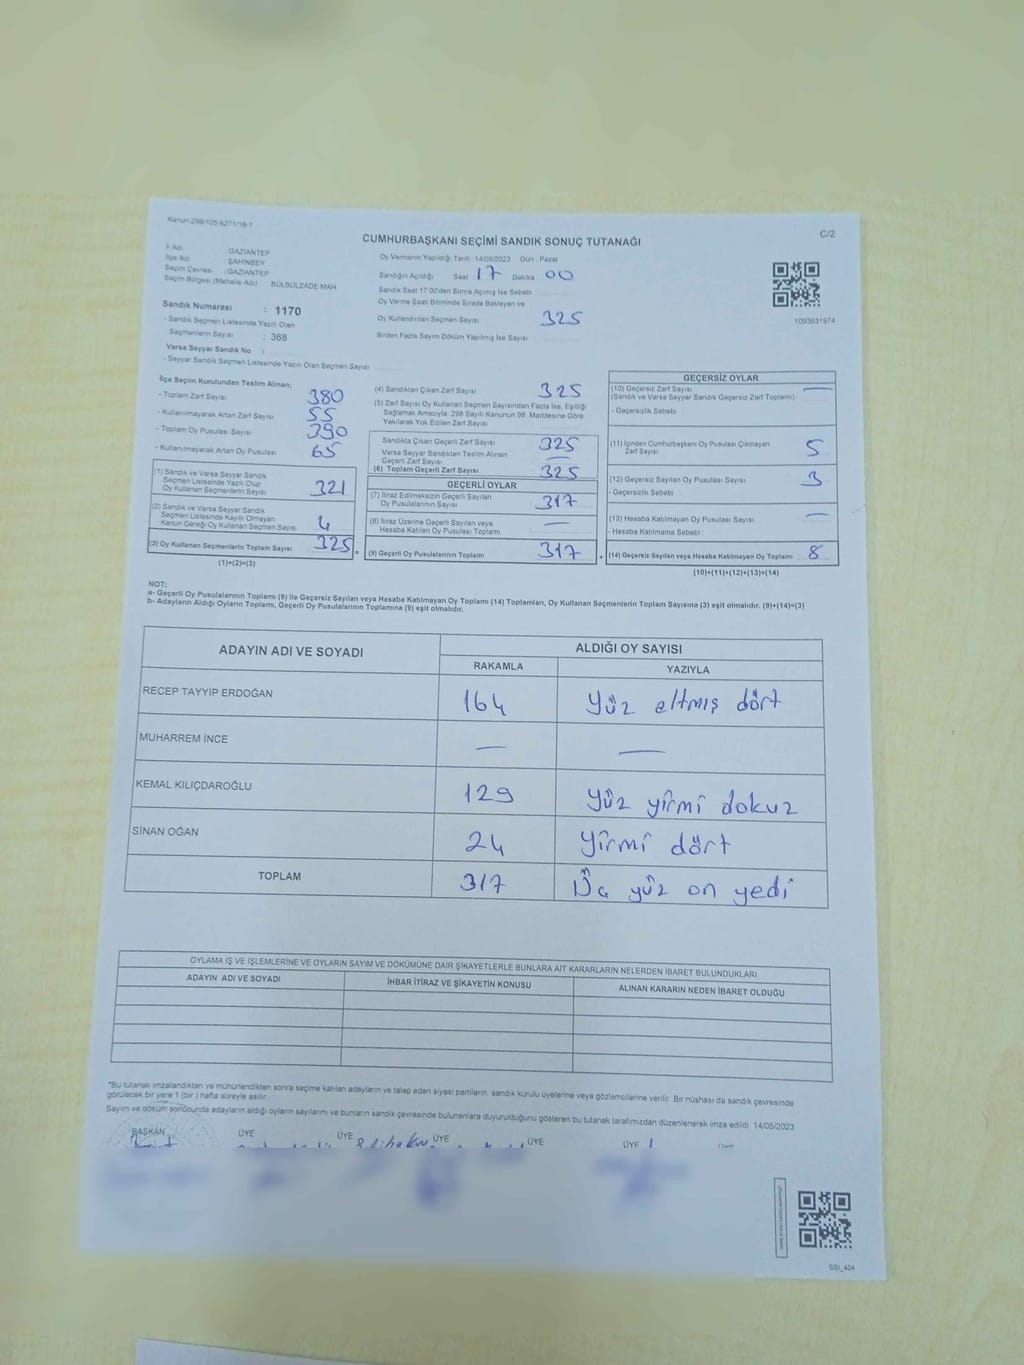 Kanun 298/105-6271/18-1
C/2
CUMHURBAŞKANI SEÇİMİ SANDIK SONUÇ TUTANAĞI
İl Adı : GAZİANTEP
İlçe Adı : ŞAHİNBEY
Seçim Çevresi : GAZİANTEP
Seçim Bölgesi (Mahalle Adı) : BÜLBÜLZADE MAH
Sandık Numarası : 1170
- Sandık Seçmen Listesinde Yazılı Olan
Seçmenlerin Sayısı : 368
Varsa Seyyar Sandık No :
- Seyyar Sandık Seçmen Listesinde Yazılı Olan Seçmen Sayısı
Oy Vermenin Yapıldığı Tarih : 14/05/2023 Gün : Pazar
Sandığın Açıldığı Saat 17 Dakika 00
Sandık Saat 17:00'den Sonra Açılmış İse Sebebi
Oy Verme Saati Bitiminde Sırada Bekleyen ve
Oy Kullandırılan Seçmen Sayısı 325
Birden Fazla Sayım Döküm Yapılmış İse Sayısı
1093831974
İlçe Seçim Kurulundan Teslim Alınan;
- Toplam Zarf Sayısı 380
- Kullanılmayarak Artan Zarf Sayısı 55
- Toplam Oy Pusulası Sayısı 390
- Kullanılmayarak Artan Oy Pusulası 65
(1) Sandık ve Varsa Seyyar Sandık
Seçmen Listesinde Yazılı Olup
Oy Kullanan Seçmenlerin Sayısı 321
(2) Sandık ve Varsa Seyyar Sandık
Seçmen Listesinde Kayıtlı Olmayan
Kanun Gereği Oy Kullanan Seçmen Sayısı 4
(3) Oy Kullanan Seçmenlerin Toplam Sayısı 325 =
(1)+(2)=(3)
(4) Sandıktan Çıkan Zarf Sayısı 325
(5) Zarf Sayısı Oy Kullanan Seçmen Sayısından Fazla İse, Eşitliği
Sağlamak Amacıyla, 298 Sayılı Kanunun 98. Maddesine Göre
Yakılarak Yok Edilen Zarf Sayısı
Sandıkta Çıkan Geçerli Zarf Sayısı 325
Varsa Seyyar Sandıktan Teslim Alınan
Geçerli Zarf Sayısı —
(6) Toplam Geçerli Zarf Sayısı 325
GEÇERLİ OYLAR
(7) İtiraz Edilmeksizin Geçerli Sayılan
Oy Pusulalarının Sayısı 317
(8) İtiraz Üzerine Geçerli Sayılan veya
Hesaba Katılan Oy Pusulası Toplamı —
(9) Geçerli Oy Pusulalarının Toplamı 317 +
GEÇERSİZ OYLAR
(10) Geçersiz Zarf Sayısı —
(Sandık ve Varsa Seyyar Sandık Geçersiz Zarf Toplamı)
- Geçersizlik Sebebi
(11) İçinden Cumhurbaşkanı Oy Pusulası Çıkmayan
Zarf Sayısı 5
(12) Geçersiz Sayılan Oy Pusulası Sayısı 3
- Geçersizlik Sebebi
(13) Hesaba Katılmayan Oy Pusulası Sayısı —
- Hesaba Katılmama Sebebi
(14) Geçersiz Sayılan veya Hesaba Katılmayan Oy Toplamı 8
(10)+(11)+(12)+(13)=(14)
NOT:
a- Geçerli Oy Pusulalarının Toplamı (9) ile Geçersiz Sayılan veya Hesaba Katılmayan Oy Toplamı (14) Toplamları, Oy Kullanan Seçmenlerin Toplam Sayısına (3) eşit olmalıdır. (9)+(14)=(3)
b- Adayların Aldığı Oyların Toplamı, Geçerli Oy Pusulalarının Toplamına (9) eşit olmalıdır.
ADAYIN ADI VE SOYADI ALDIĞI OY SAYISI
RAKAMLA YAZIYLA
RECEP TAYYİP ERDOĞAN 164 Yüz altmış dört
MUHARREM İNCE — —
KEMAL KILIÇDAROĞLU 129 Yüz yirmi dokuz
SİNAN OĞAN 24 Yirmi dört
TOPLAM 317 Üç yüz on yedi
OYLAMA İŞ VE İŞLEMLERİNE VE OYLARIN SAYIM VE DÖKÜMÜNE DAİR ŞİKAYETLERLE BUNLARA AİT KARARLARIN NELERDEN İBARET BULUNDUKLARI
ADAYIN ADI VE SOYADI İHBAR İTİRAZ VE ŞİKAYETİN KONUSU ALINAN KARARIN NEDEN İBARET OLDUĞU
*Bu tutanak imzalandıktan ve mühürlendikten sonra seçime katılan adayların ve talep eden siyasi partilerin sandık kurulu üyelerine veya gözlemcilerine verilir. Bir nüshası da sandık çevresinde
görülecek bir yere 1 (bir ) hafta süreyle asılır.
Sayım ve döküm sonucunda adayların aldığı oyların sayılarını ve bunların sandık çevresinde bulunanlara duyurulduğunu gösteren bu tutanak tarafımızdan düzenlenerek imza edildi. 14/05/2023
BAŞKAN ÜYE ÜYE ÜYE ÜYE ÜYE
SSİ_404